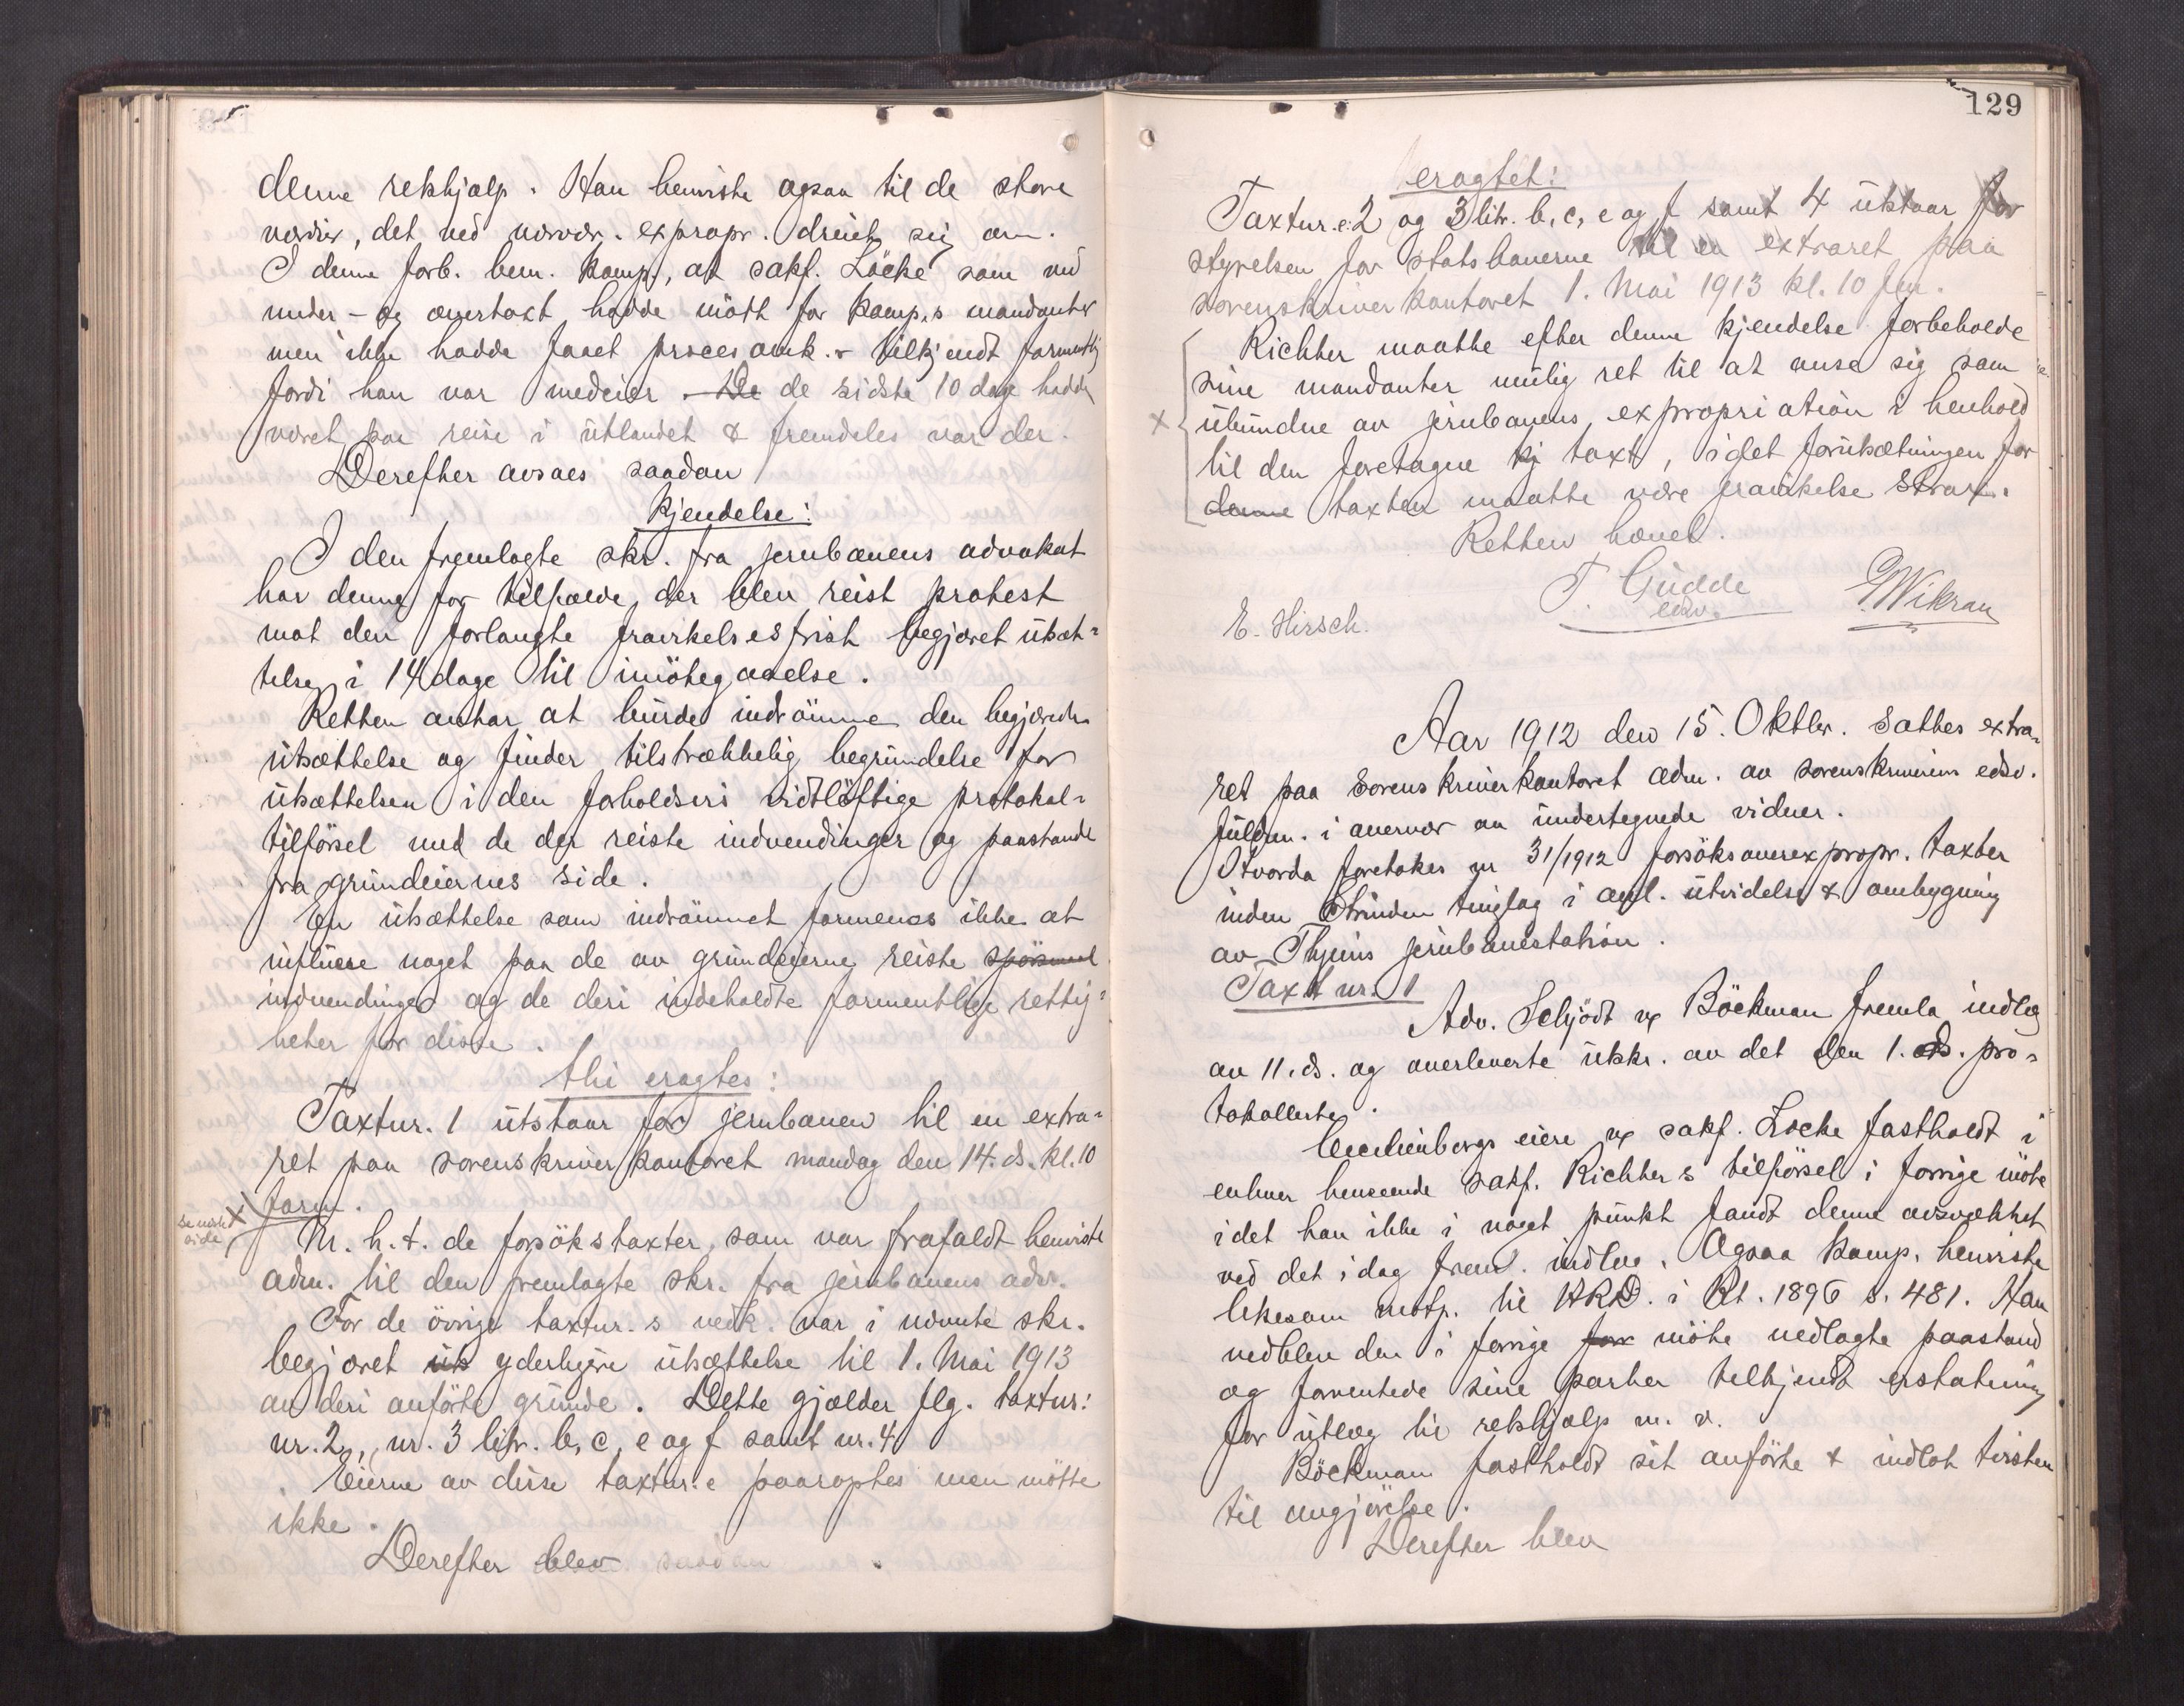 denne retshjælp. Han henviste ogsaa til de store
værdier, det ved nærvær. expropr. dreiet sig om.
I denne forb. bem. komp., at sakf. Löcke som ved
under- og overtaxt hadde mött for komp.s mandanter
men ikke hadde faaet procesomk. tilkjendt formentlig
fordi han var medeier. De de sidste 10 dage hadde
været paa reise i utlandet & fremdeles var der.
Derefter avsaes saadan
Kjendelse:
I den fremlagte skr. fra jernbanens advokat
har denne for tilfælde der blev reist protest
mot den forlangte fravikelsesfrist begjæret utsæt-
telse i 14 dage til imötegaaelse.
Retten antar at burde indrömme den begjærede
utsættelse og finder tilstrækkelig begrundelse for
utsættelsen i den forholdsvis vidtlöftige protokol-
tilförsel med de der reiste indvendinger og paastande
fra grundeiernes side.
En utsættelse som indrömmet formenes ikke at
influere noget paa de av grundeierne reiste spörsmaal
indvendinger og de deri indeholdte formentlige rettig-
heter for disse.
thi eragtes:
Taxtnr. 1 utstaar for jernbanen til en extra-
ret paa sorenskriverkontoret mandag den 14. ds. kl. 10
form.
se neste side
M. h. t. de forsökstaxter, som var frafaldt henviste
adm. til den fremlagte skr. fra jernbanens adv.
For de övrige taxtnr.s vedk. var i nævnte skr.
begjæret uts yderligere utsættelse til 1. Mai 1913
av deri anförte grunde. Dette gjælder flg. taxtnr:
nr. 2, nr. 3 litr. b, c, e og f samt nr. 4
Eierne av disse taxtnr.e paaroptes men mötte
ikke.
Derefter blev saadan
129
eragtet:
Taxtnr.e 2 og 3 litr. b, c, e og f samt 4 utstaar for
styrelsen for statsbanerne til en extraret paa
sorenskriverkontoret 1. Mai 1913 kl. 10 fm.
Richter maatte efter denne kjendelse forbeholde
sine mandanter mulig ret til at anse sig som
ubundne av jernbanens expropriation i henhold
til den foretagne kj taxt, idet forutsætningen for
denne taxten maatte være fravikelse strax.
Retten hævet.
T. Gudde
edsv.
E. Hirsch.
G. Wikran
Aar 1912 den 15. Oktbr. sattes extra-
ret paa Sorenskriverkontoret adm. av sorenskriverens edsv.
fuldm. i overvær av undertegnede vidner.
Hvorda foretokes nr 31/1912 forsöksoverexpropr. taxter
inden Strinden tinglag i anl. utvidelse & ombygning
av Thjems jernbanestation.
Taxt nr. 1
Adv. Schjödt v/ Böckman fremla indlæg
av 11. ds. og overleverte utskr. av det den 1. ds. pro-
tokollerte.
Ceciliënborgs eiere v/ sakf. Locke fastholdt i
enhver henseende sakf. Richters tilförsel i forrige möte
idet han ikke i noget punkt fandt denne avsvækket
ved det idag frem. indlæg. Ogsaa komp. henviste
likesom motp. til HRD. i Rt. 1896 s. 481. Han
vedblev den i forrige for möte nedlagte paastand
og forventede sine parter tilkjendt erstatning
for utlæg til retshjælp m. v.
Böckman fastholdt sit anförte & indlot tvisten
til avgjörelse.
Derefter blev